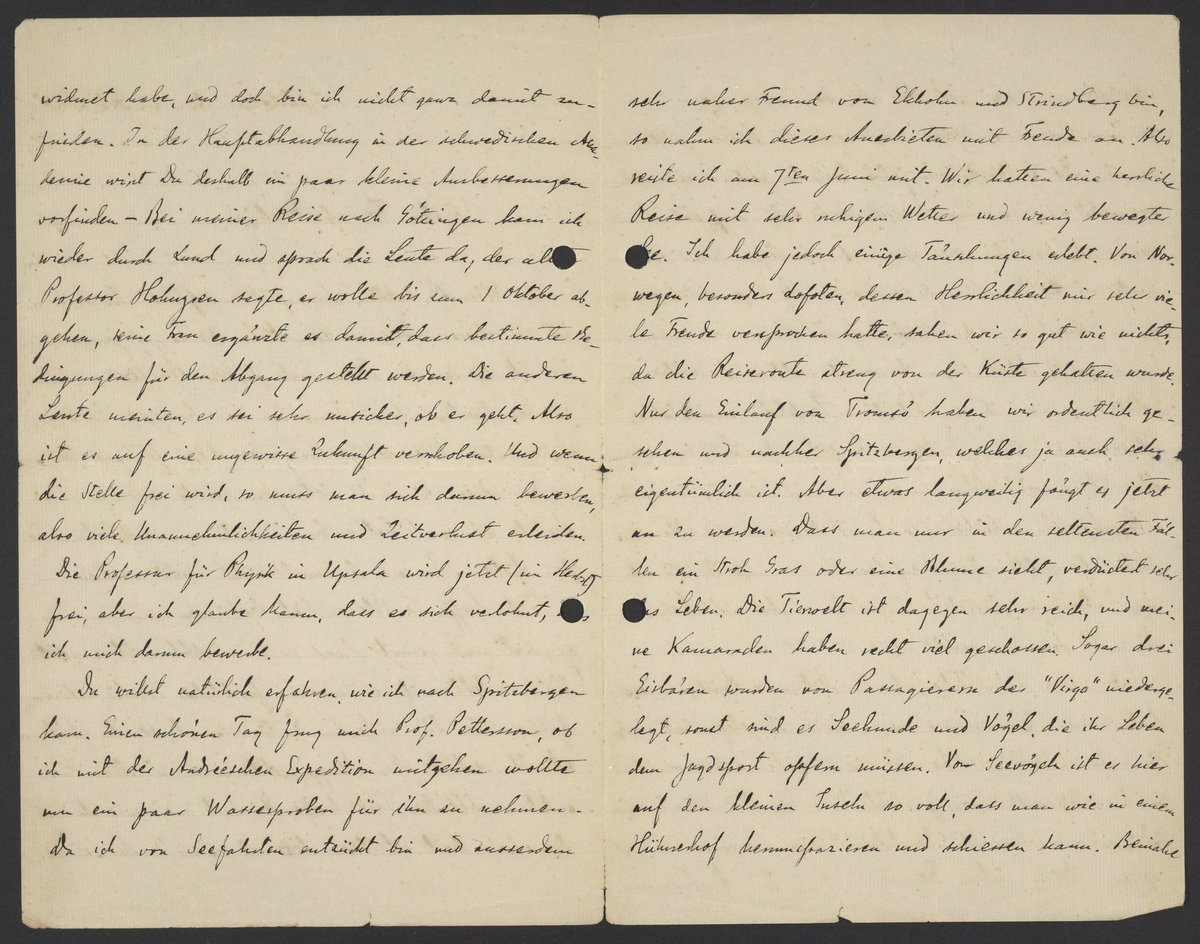 widmet habe, und doch bin ich nicht ganz damit zu-
frieden. In der Hauptabhandlung in der schwedischen Aka-
demie wirst Du deshalb ein paar kleine Ausbesserungen
vorfinden – Bei meiner Reise nach Göttingen kam ich
wieder durch Lund und sprach die Leute da, der
Professor Holmgren sagte, er wolle bis zum 1 Oktober ab-
gehen, seine Frau ergänzte es damit, dass bestimmte Be-
dingungen für den Abgang gestellt werden. Die anderen
Leute meinten, es sei sehr unsicher, ob er geht. Also
ist es auf eine ungewisse Zukunft verschoben. Und wenn
die Stelle frei wird, so muss man sich darum bewerben,
also viele Unannehmlichkeiten und Zeitverlust erleiden.
Die Professur für Physik in Upsala wird jetzt (im Herbst)
frei, aber ich glaube kaum, dass es sich verlohnt,
ich mich darum bewerbe.
Du willst natürlich erfahren, wie ich nach Spitzbergen
kam. Einen schönen Tag frug mich Prof. Pettersson, ob
ich mit der Andréeschen Expedition mitgehen wollte
um ein paar Wasserproben für ihn zu nehmen –
Da ich von Seefahrten entzückt bin und ausserdem
sehr naher Freund von Ekholm und Strindberg bin,
so nahm ich dieses Anerbieten mit Freude an. Also
reiste ich am 7ten Juni mit. Wir hatten eine herrliche
Reise mit sehr ruhigem Wetter und wenig bewegter
See. Ich habe jedoch einige Täuschungen erlebt. Von Nor-
wegen, besonders Lofoten, dessen Herrlichkeit mir sehr vie-
le Freude versprochen hatte, sahen wir so gut wie nichts,
da die Reiseroute streng von der Küste gehalten wurde.
Nur den Einlauf von Tromsö haben wir ordentlich ge-
sehen und nachher Spitzbergen, welches ja auch sehr
eigentümlich ist. Aber etwas langweilig fängt es jetzt
an zu werden. Dass man nur in den seltensten Fäl-
len ein Stroh Gras oder eine Blume sieht, verdüstert sehr
das Leben. Die Tierwelt ist dagegen sehr reich, und mei-
ne Kamaraden haben recht viel geschossen. Sogar drei
Eisbären wurden von Passagierern der "Virgo" niederge-
legt, sonst sind es Seehunde und Vögel, die ihr Leben
dem Jagdsport opfern müssen. Von Seevögeln ist es hier
auf den kleinen Inseln so voll, dass man wie in einem
Hühnerhof herumspazieren und schiessen kann. Beinahe